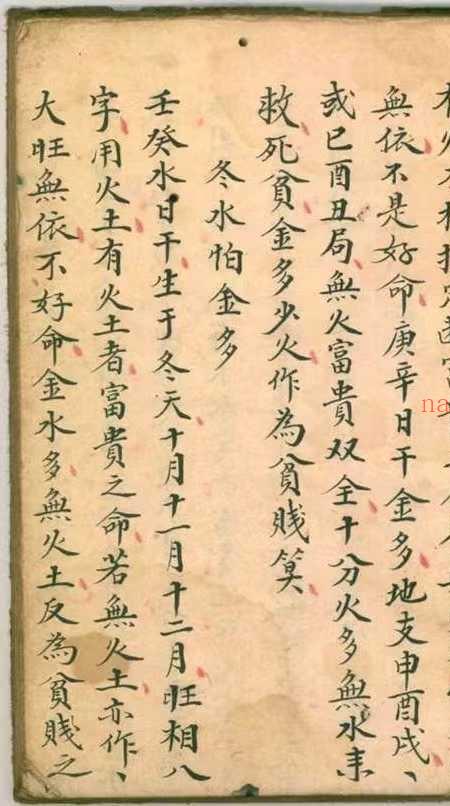 無依不是好命庚辛日干金多地支申酉戌、
或巳酉丑局無火富貴双全十八分火多無水来
救死貧金多少火作為貧賎筭
冬水怕金多
壬癸水日干生于冬天十月十一月十二月旺相八
字用火土有火土者富貴之命若無火土亦作、
大旺無依不好命金水多無火土反為貧賎之
na